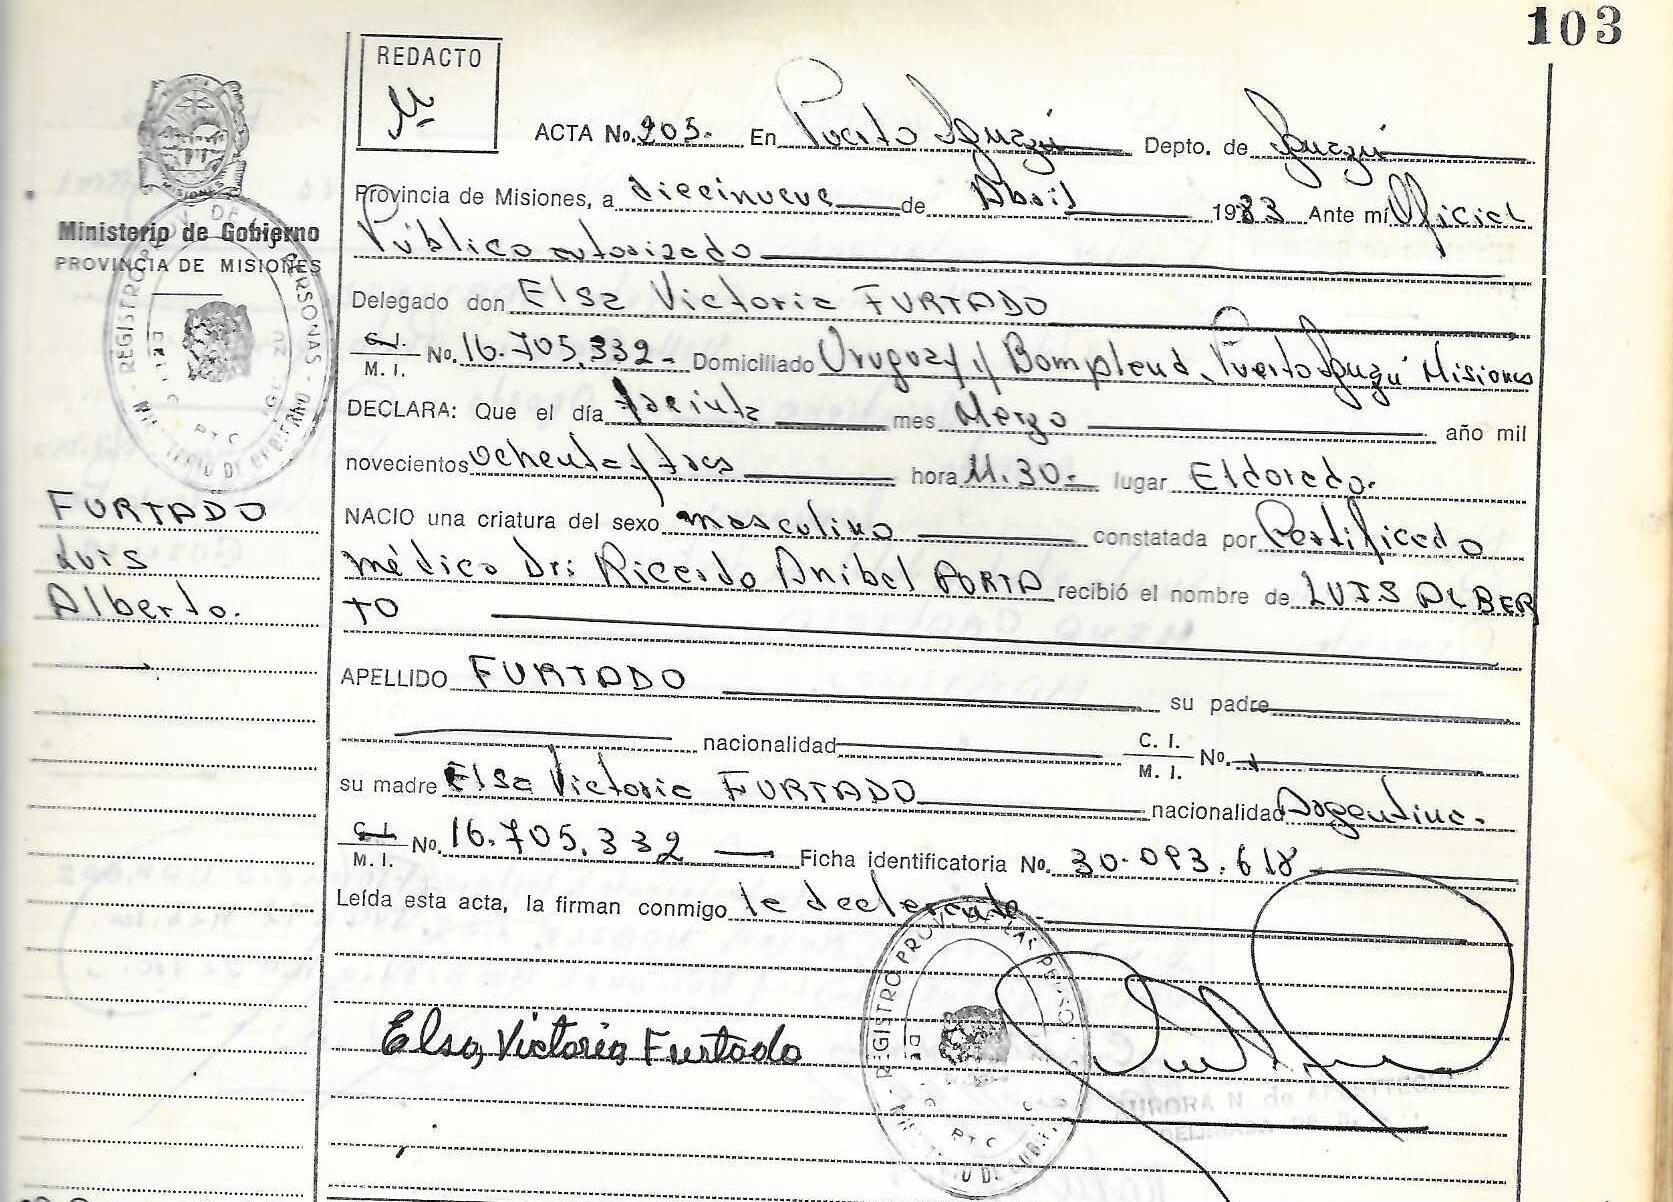 103
REDACTO
ACTA No. 205.- En Puerto Iguazú Depto. de Iguazú
Provincia de Misiones, a diecinueve de Abril 1983 Ante mí Oficial
Público autorizado
Delegado don Elsa Victoria FURTADO
C. I.
M. I. No. 16.705.332- Domiciliado Uruguay y Bompland, Puerto Iguazú Misiones
DECLARA: Que el día treinta mes Marzo año mil
novecientos ochenta y tres hora 11.30- lugar Eldorado.
NACIO una criatura del sexo masculino constatada por Certificado
médico Dr: Ricardo Anibal PORTA recibió el nombre de LUIS ALBER
TO
APELLIDO FURTADO su padre
nacionalidad C. I.
M. I. No.
su madre Elsa Victoria FURTADO nacionalidad Argentina.
C. I.
M. I. No. 16.705.332 Ficha identificatoria No. 30.093.618
Leída esta acta, la firman conmigo la declarante
Elsa Victoria Furtado
REGISTRO PROV. DE LAS PERSONAS
MINISTERIO DE GOBIERNO
AURORA N. de
MISIONES
Ministerio de Gobierno
PROVINCIA DE MISIONES
REGISTRO PROV. DE LAS PERSONAS
MINISTERIO DE GOBIERNO
FURTADO
Luis
Alberto.